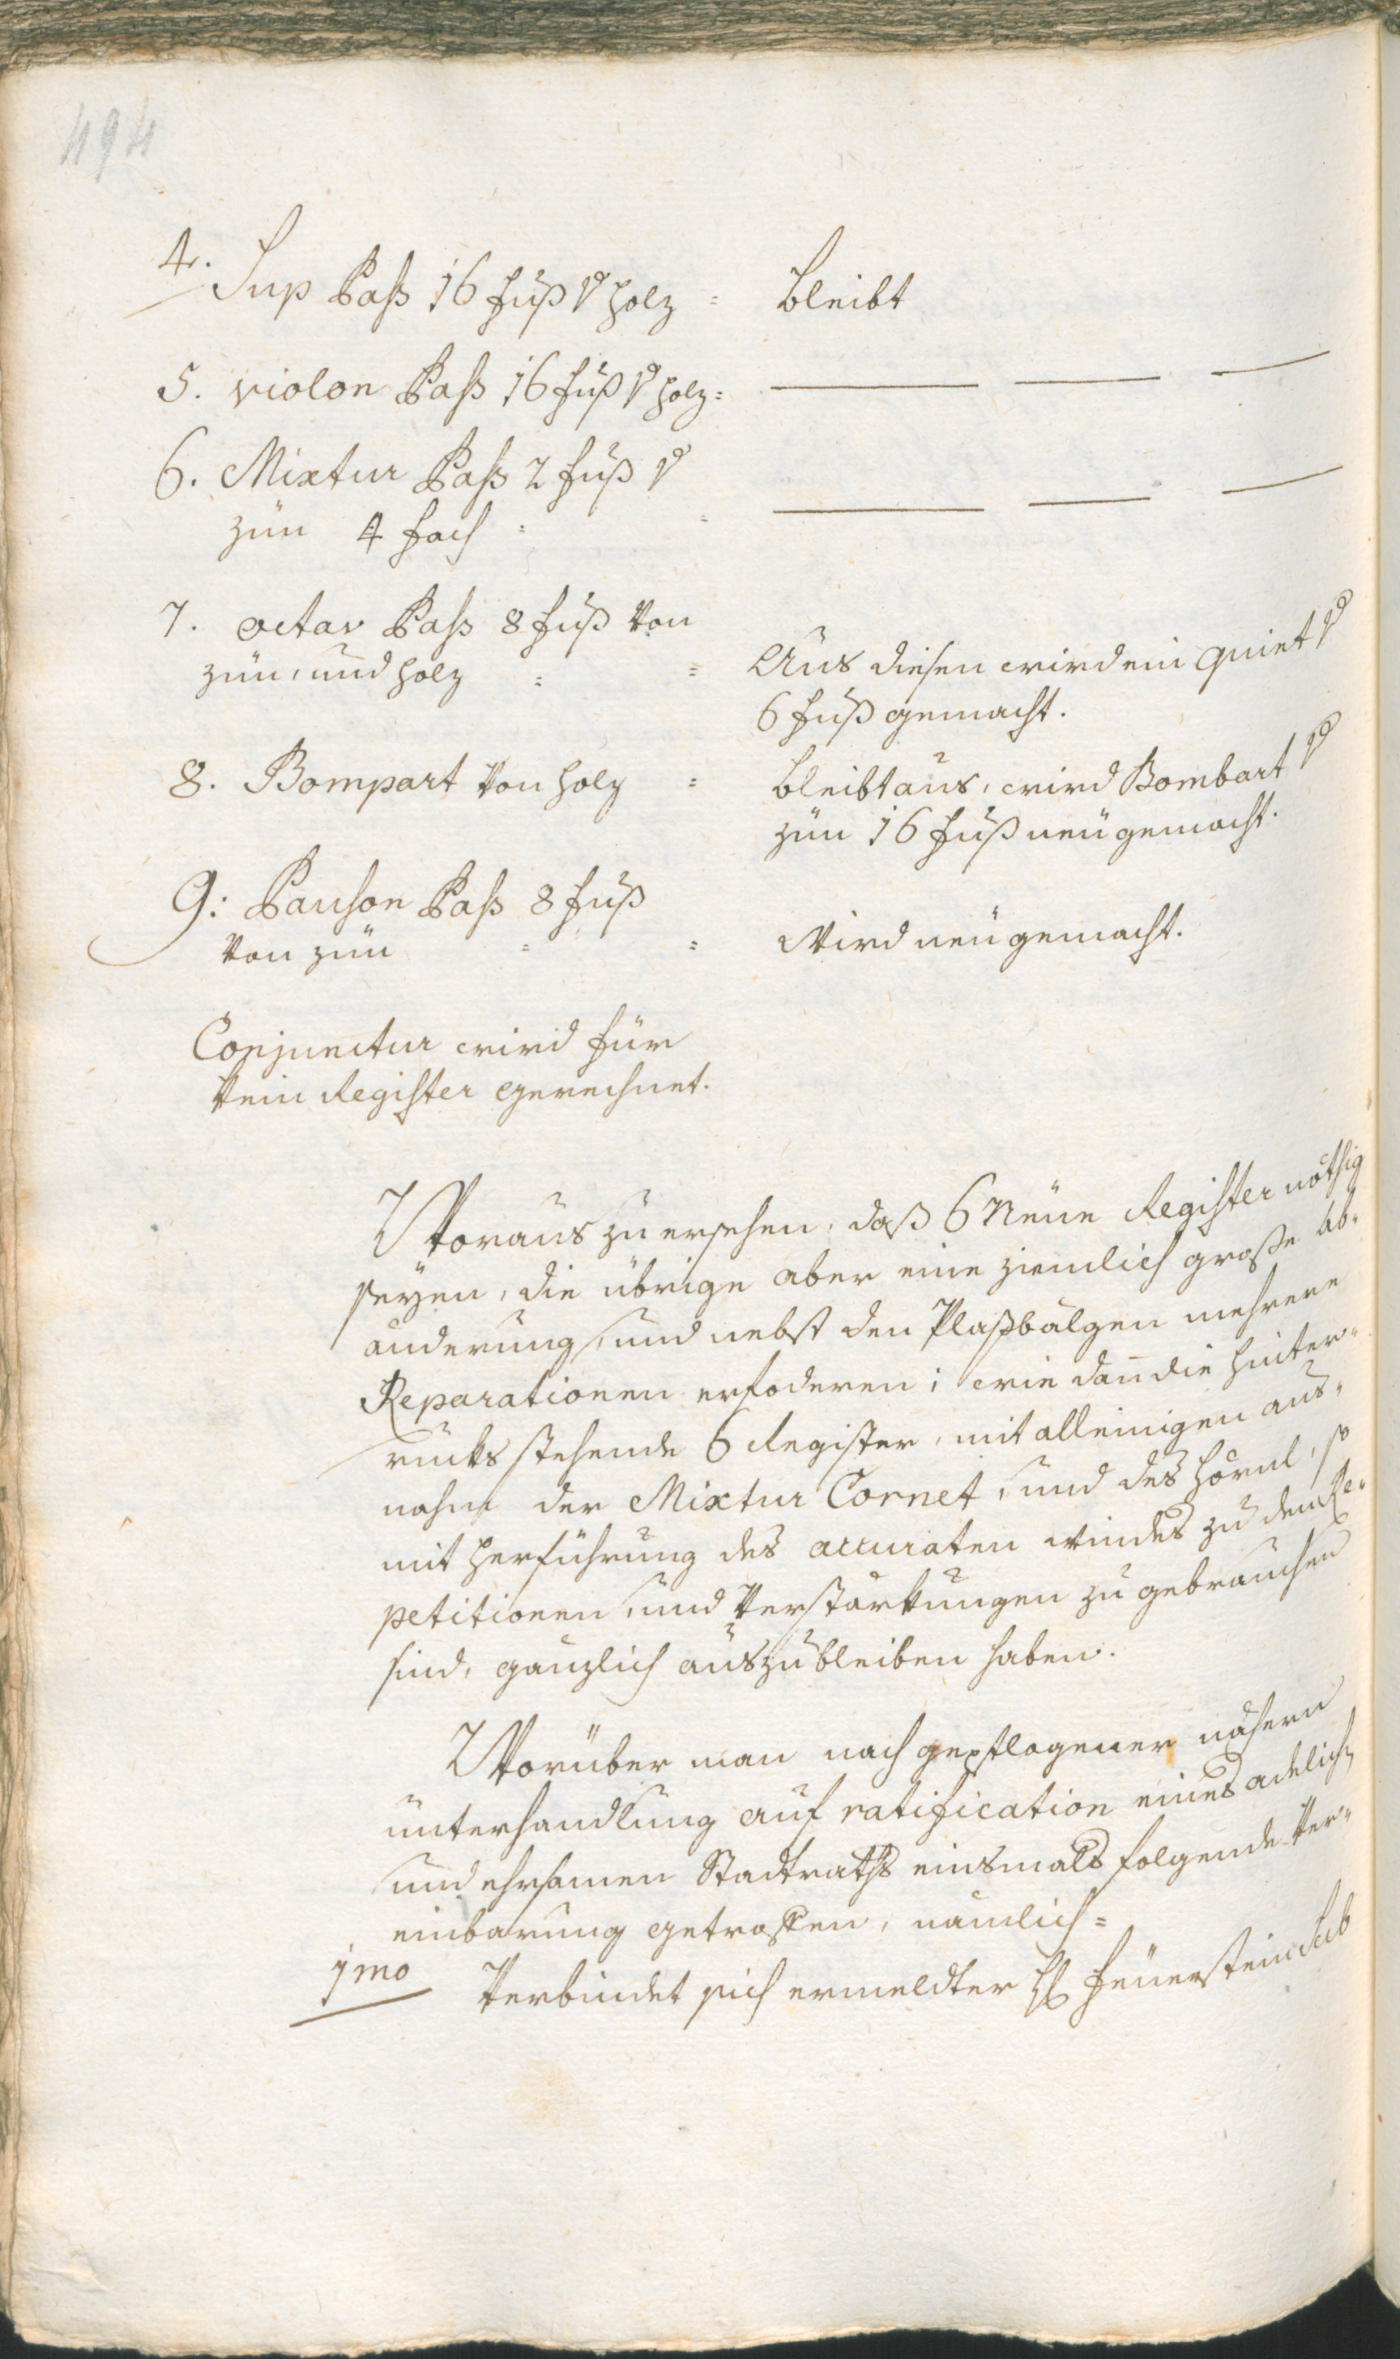 494
4. Sup Baß 16 fuß v holz = bleibt
5. violon Baß 16 fuß v holz =
6. Mixtur Baß 2 fuß v
zün 4 fach =
7. octav Baß 8 fuß von
zün, und holz = = Aus diesen wird ein quint v
6 fuß gemacht.
8. Bompart von holz = bleibt aus, wird Bombart v
zün 16 fuß neü gemacht.
9: Bauson Baß 8 fuß
von zün = = wird neü gemacht.
Conjunctur wird für
kein Register gerechnet.
Woraus zu ersehen, daß 6 Neüe Register nöthig
seyen, die übrige aber eine ziemlich große ab-
änderung, und nebst den Plaßbälgen mehrere
Reparationen erfoderen; wie dañ die hinter-
rucks stehende 6 Register, mit alleinigen aus-
nahm der Mixtur Cornet, und des hörnl, so
mit herführung des accuraten windes zu den Re-
petitionen, und verstärkungen zu gebrauchen
sind, gänzlich auszubleiben haben.
Worüber man nach gepflogener nähern
unterhandlung auf ratification eines adelich
und ehrsamen Stadtraths einsmals folgende ver-
einbarung getroffen, nämlich =
1mo Verbindet sich ermeldter H Feüerstein Sub